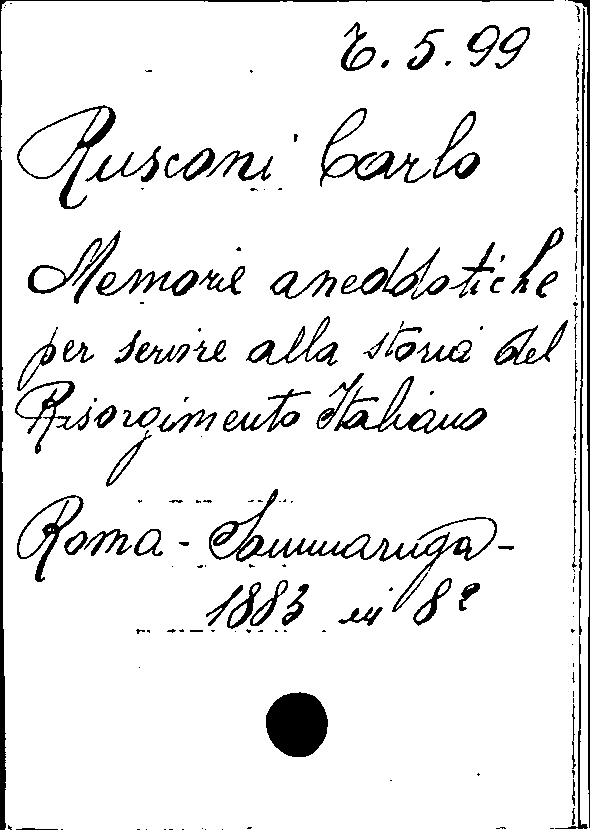 6.5.99
Rusconi Carlo
Memorie aneddotiche
per servire alla storia del
Risorgimento Italiano
Roma - Sommaruga -
1883 in 8º